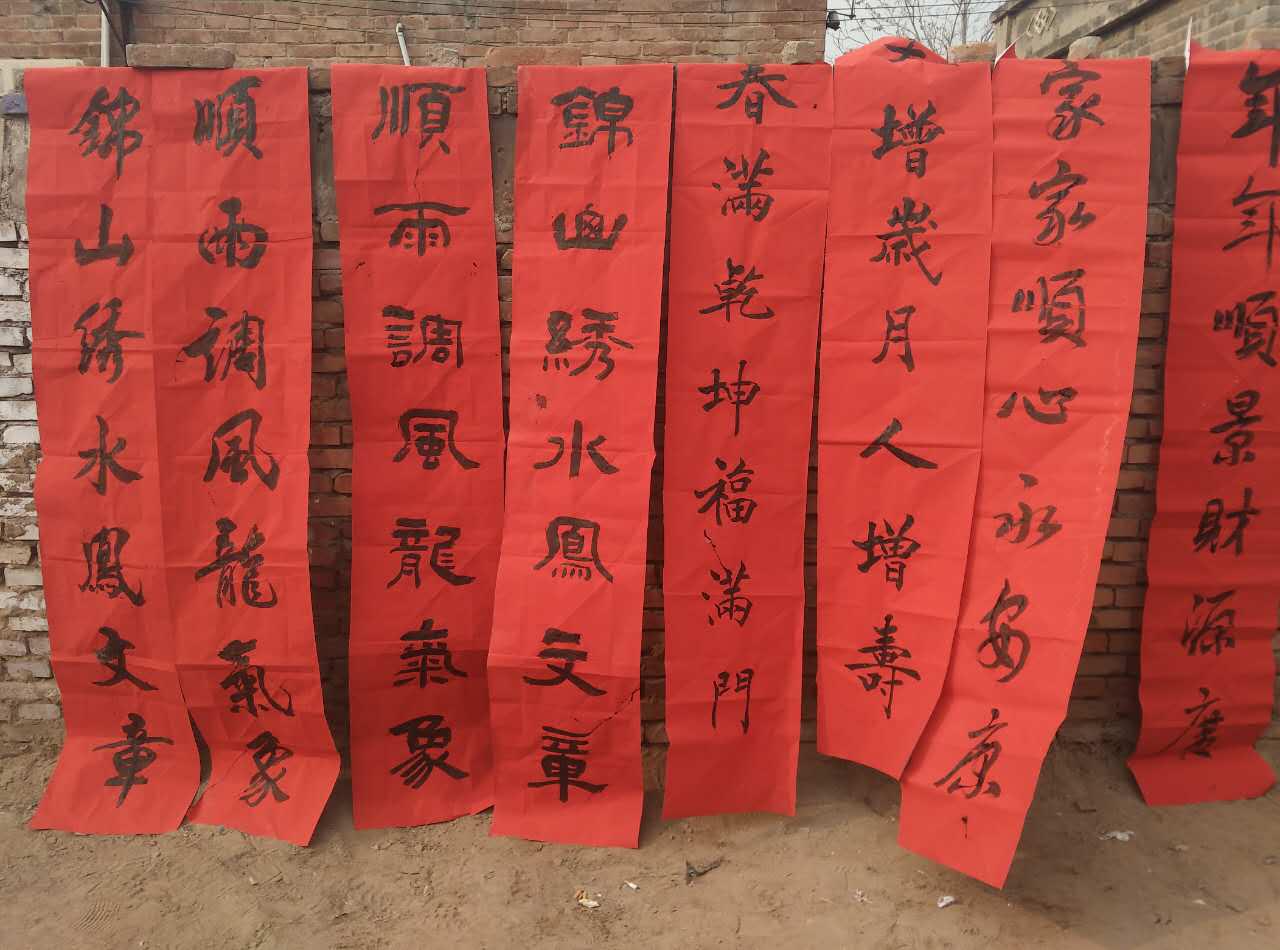 年年順景財源廣
家家順心永安康
天增歲月人增壽
春滿乾坤福滿門
錦山綉水鳳文章
順雨調風龍氣象
順雨调風龍氣象
錦山绣水鳳文章